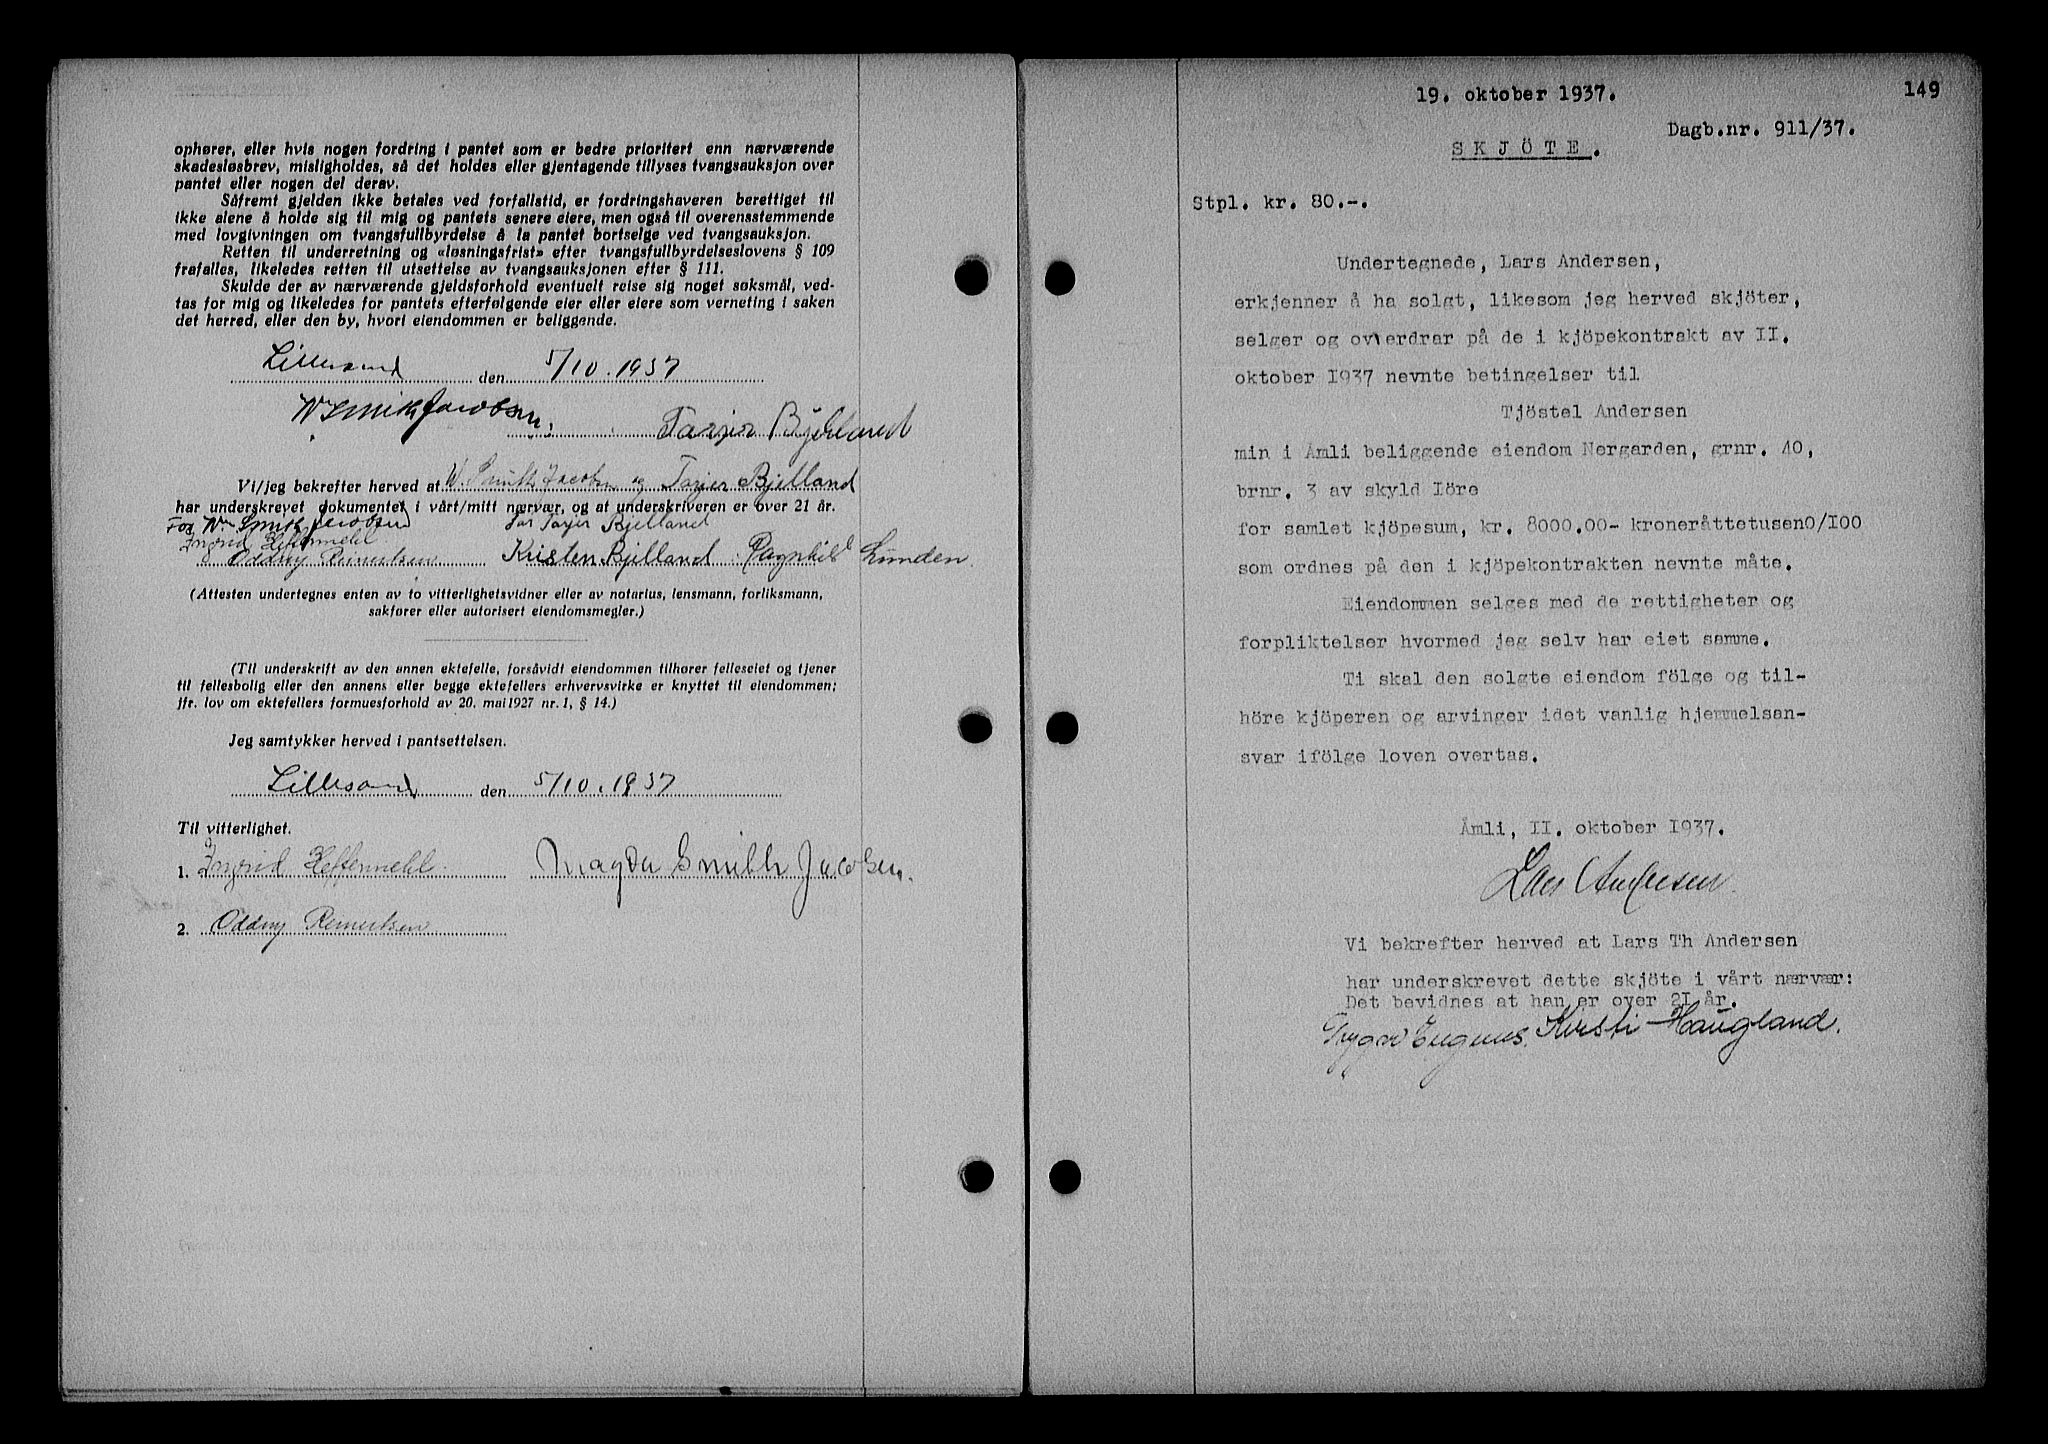 ophører, eller hvis nogen fordring i pantet som er bedre prioritert enn nærværende
skadesløsbrev, misligholdes, så det holdes eller gjentagende tillyses tvangsauksjon over
pantet eller nogen del derav.
Såfremt gjelden ikke betales ved forfallstid, er fordringshaveren berettiget til
ikke alene å holde sig til mig og pantets senere eiere, men også til overensstemmende
med lovgivningen om tvangsfullbyrdelse å la pantet bortselge ved tvangsauksjon.
Retten til underretning og «løsningsfrist» efter tvangsfullbyrdelseslovens § 109
frafalles, likeledes retten til utsettelse av tvangsauksjonen efter § 111.
Skulde der av nærværende gjeldsforhold eventuelt reise sig noget søksmål, ved-
tas for mig og likeledes for pantets efterfølgende eier eller eiere som verneting i saken
det herred, eller den by, hvori eiendommen er beliggende.
Lillesand den 5/10. 1937
W Smith Jacobsen. Tarjer Bjelland
Vi/jeg bekrefter herved at W. Smith Jacobsen og Tarjer Bjelland
har underskrevet dokumentet i vårt/mitt nærvær, og at underskriveren er over 21 år.
For Wm Smith Jacobsen for Tarjer Bjelland
Ingrid Heftermehl
Oddny Reinertsen Kristen Bjelland Ragnhild Lunden
(Attesten undertegnes enten av to vitterlighetsvidner eller av notarius, lensmann, forliksmann,
sakfører eller autorisert eiendomsmegler.)
(Til underskrift av den annen ektefelle, forsåvidt eiendommen tilhører felleseiet og tjener
til fellesbolig eller den annens eller begge ektefellers erhvervsvirke er knyttet til eiendommen;
jfr. lov om ektefellers formuesforhold av 20. mai 1927 nr. 1, § 14.)
Jeg samtykker herved i pantsettelsen.
Lillesand den 5/10. 1937
Til vitterlighet.
1. Ingrid Heftermehl Magda Smith Jacobsen.
2. Oddny Reinertsen
19. oktober 1937. 149
Dagb.nr. 911/37.
SKJÖTE.
Stpl. kr. 80.-.
Undertegnede, Lars Andersen,
erkjenner å ha solgt, likesom jeg herved skjöter,
selger og overdrar på de i kjöpekontrakt av II.
oktober 1937 nevnte betingelser til
Tjöstel Andersen
min i Åmli beliggende eiendom Nergarden, grnr. 40,
brnr. 3 av skyld Iöre
for samlet kjöpesum, kr. 8000.00- kroneråttetusen0/I00
som ordnes på den i kjöpekontrakten nevnte måte.
Eiendommen selges med de rettigheter og
forpliktelser hvormed jeg selv har eiet samme.
Ti skal den solgte eiendom fölge og til-
höre kjöperen og arvinger idet vanlig hjemmelsan-
svar ifölge loven overtas.
Åmli, II. oktober 1937.
Lars Andersen.
Vi bekrefter herved at Lars Th Andersen
har underskrevet dette skjöte i vårt nærvær:
Det bevidnes at han er over 21 år.
Kirsti Haugland.